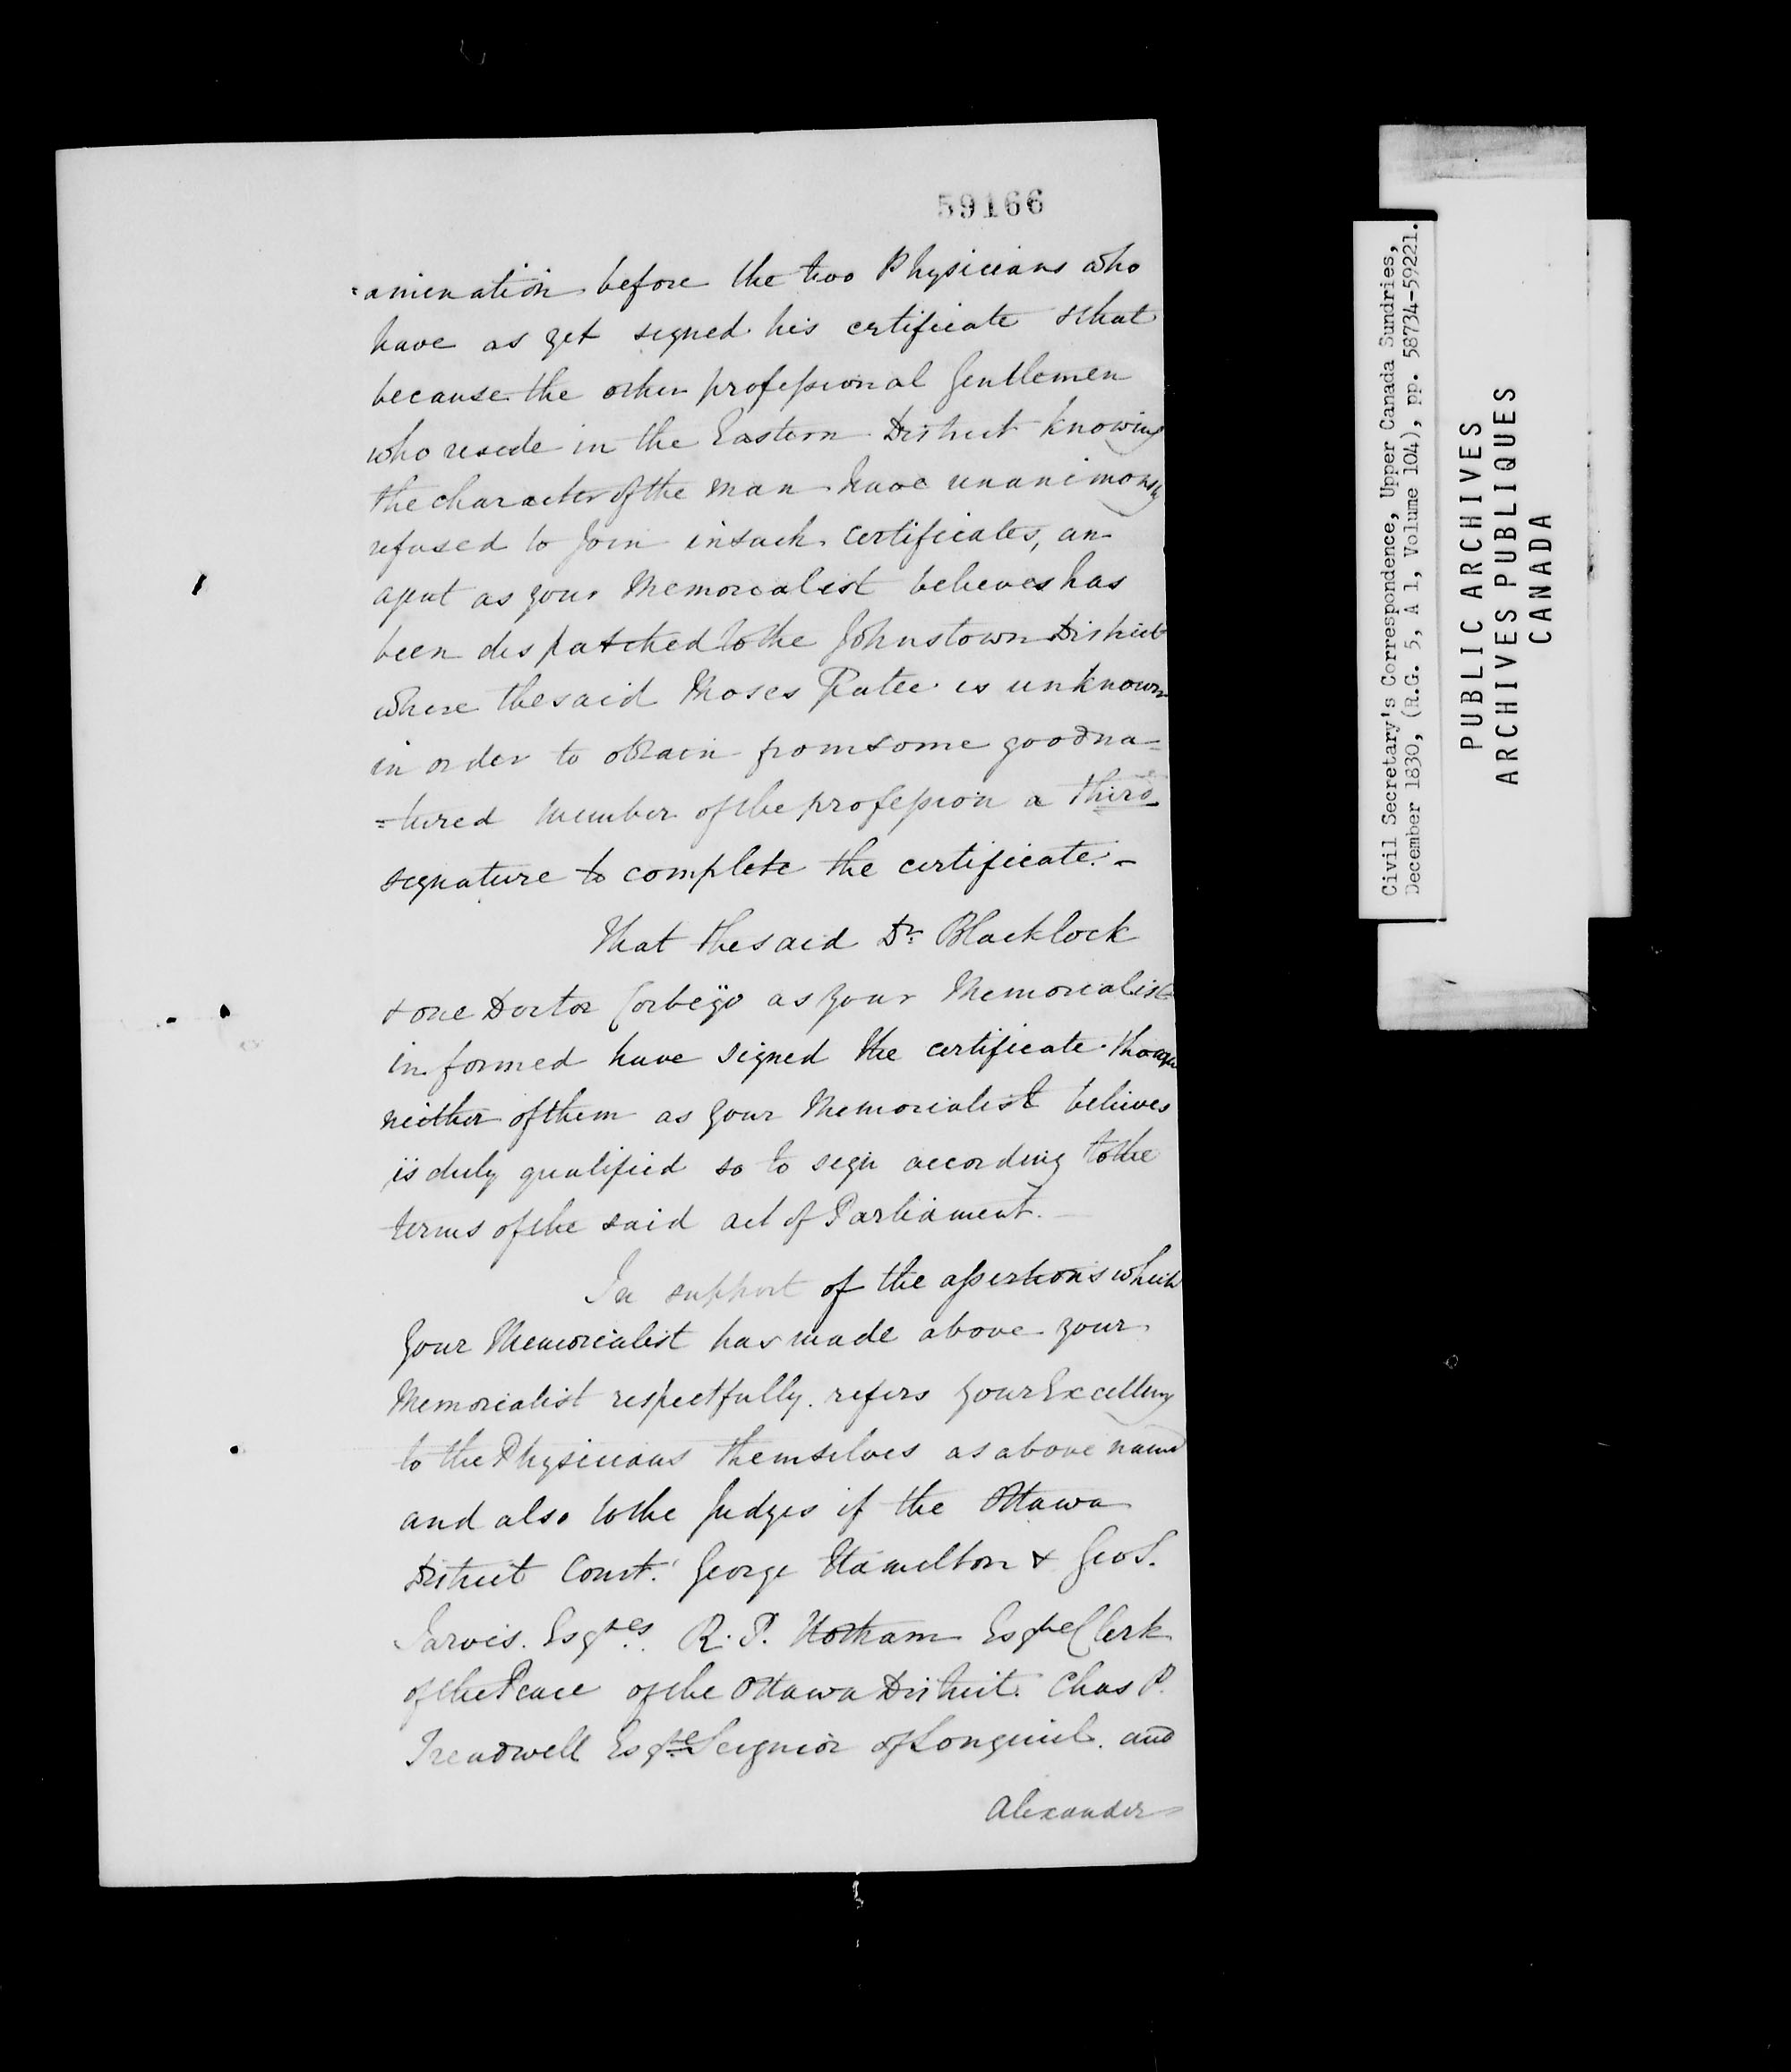 59166
=amination before the two Physicians who
have as yet signed his certificate & that
because the other professional Gentlemen
who reside in the Eastern District knowing
the character of the man have unanimously
refused to join in such certificates, an
agent as your Memorialist believes has
been dispatched to the Johnstown District
where the said Moses Patee is unknown
in order to obtain from some good na=
=tured member of the profession a third
signature to complete the certificate. -
That the said Dr. Blacklock
& one Doctor as your Memorialist
informed have signed the certificate though
neither of them as your Memorialist believes
is duly qualified so to sign according to the
terms of the said act of Parliament. -
In support of the assertions which
your Memorialist has made above your
Memorialist respectfully refers your Excellency
to the Physicians themselves as above named
and also to the Judges of the Ottawa
District Court. George Hamilton & Geo S.
Jarvis. Esqres. R. P. Hotham Esqre Clerk
of the Peace of the Ottawa District. Chas P.
Treadwell Esqre Seignior of Longuiel. and
Alexander
Civil Secretary's Correspondence, Upper Canada Sundries,
December 1830, (R.G. 5, A 1, Volume 104), pp. 58734-59221.
PUBLIC ARCHIVES
ARCHIVES PUBLIQUES
CANADA